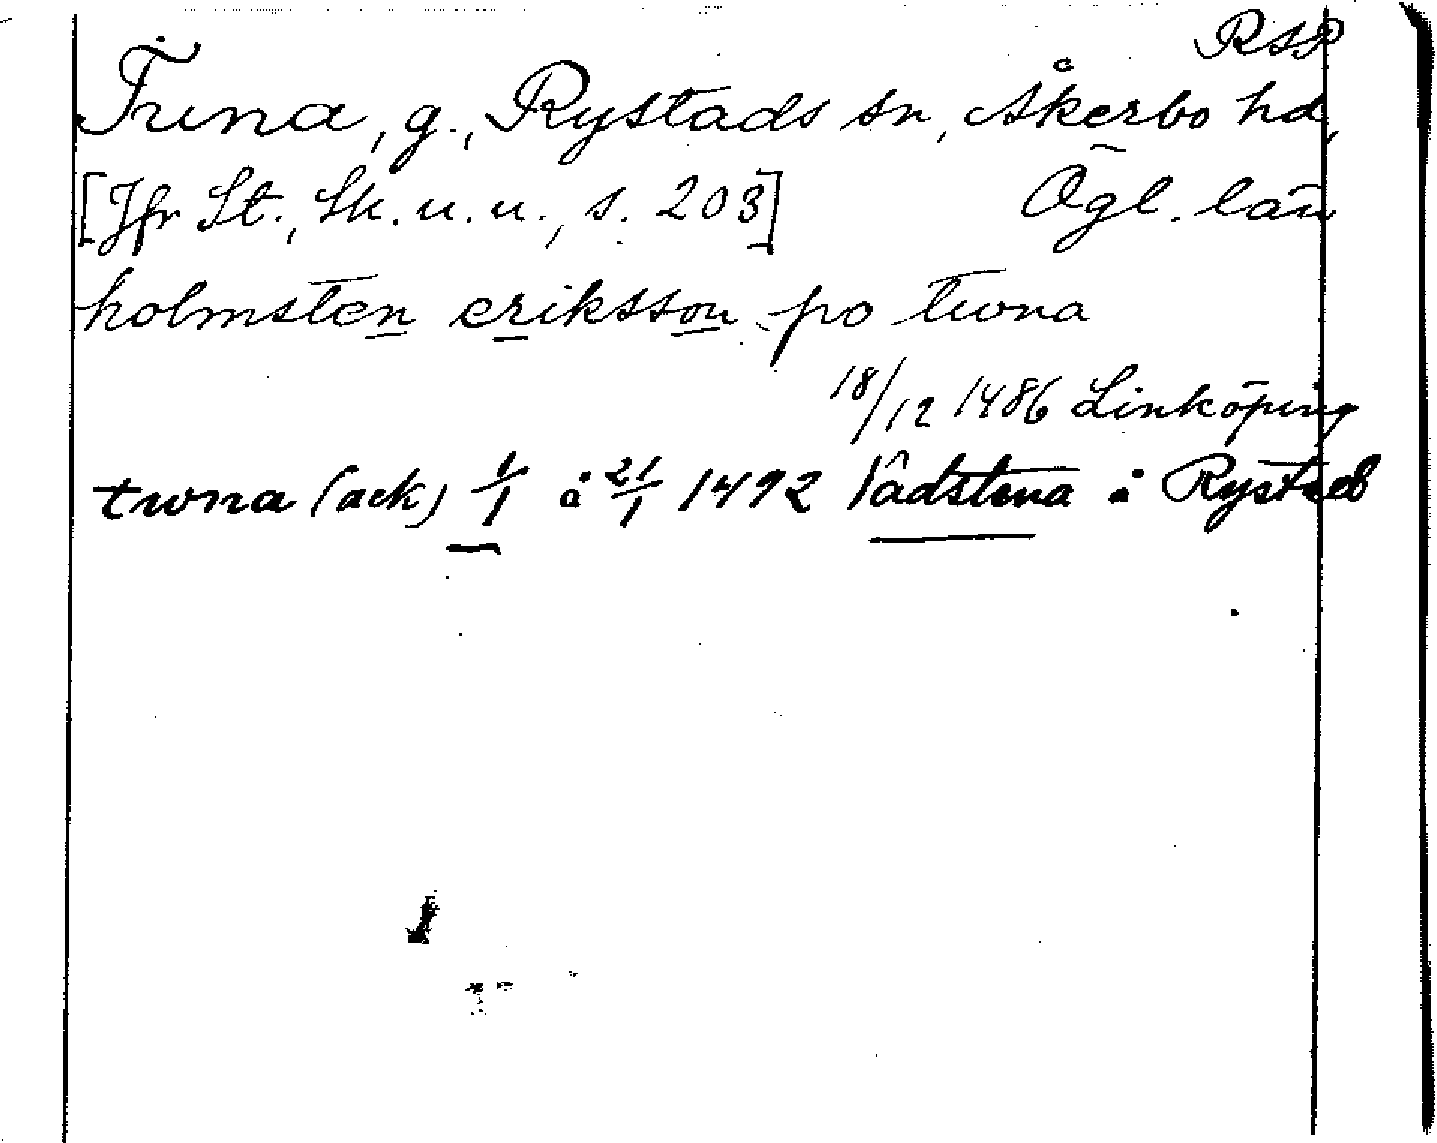 RSP
Tuna, g., Rystads sn, Åkerbo hd,
[Jfr St., Sk. u. u., s. 203] Ögl. län
holmsten eriksson po twna
18/12 1486 Linköping
twna (ack) 1/1 å 21/1 1492 Vadstena å Rystad